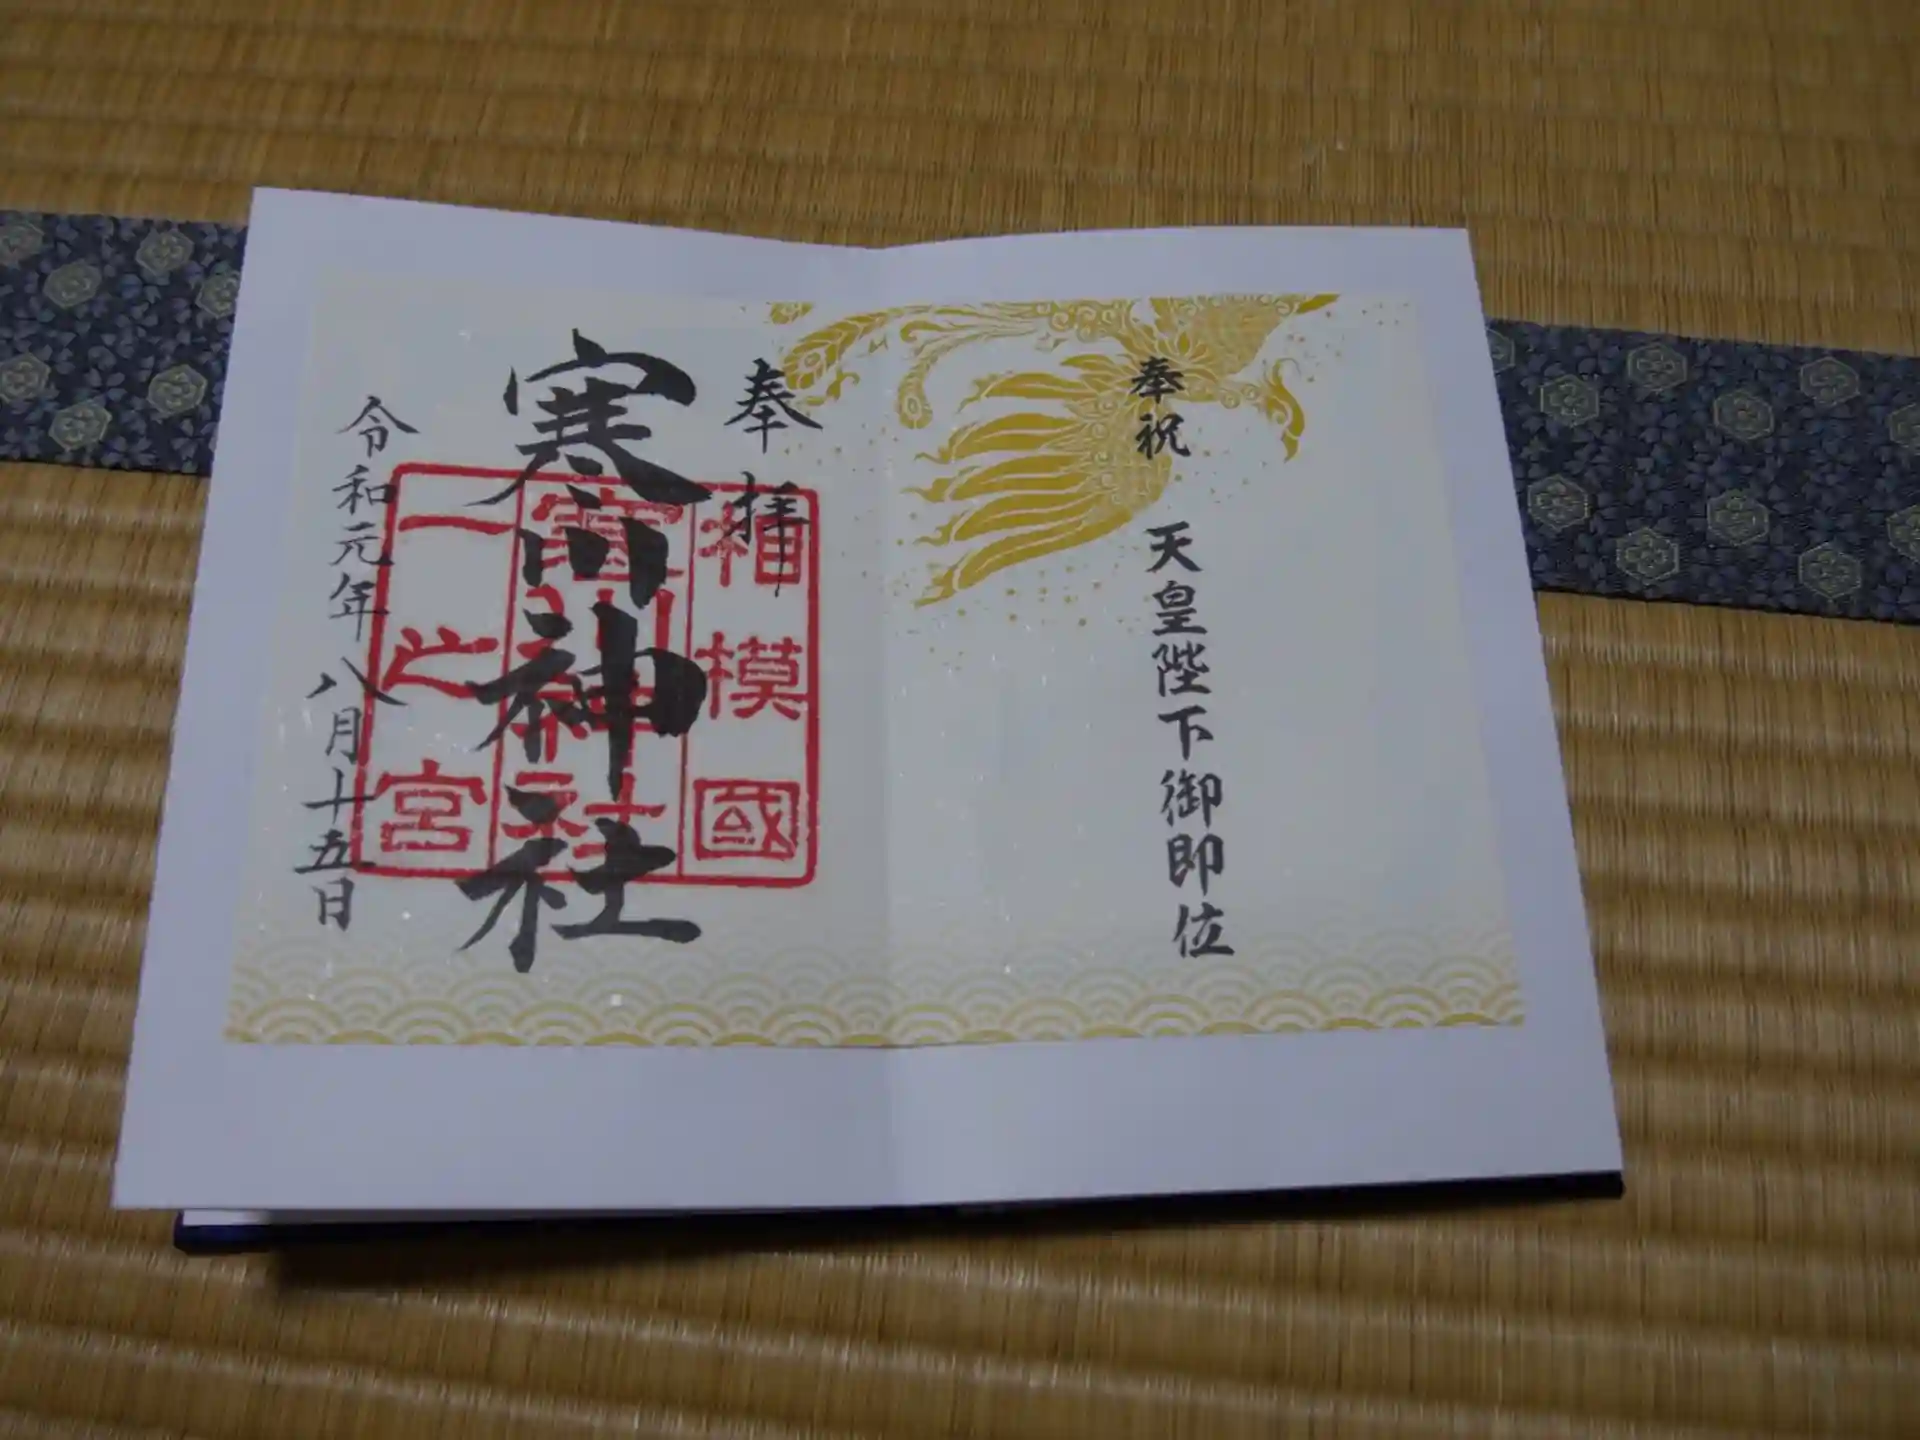 奉祝
天皇陛下御即位
奉拝
寒川神社
令和元年八月十五日
相模國
寒川神社
一之宮